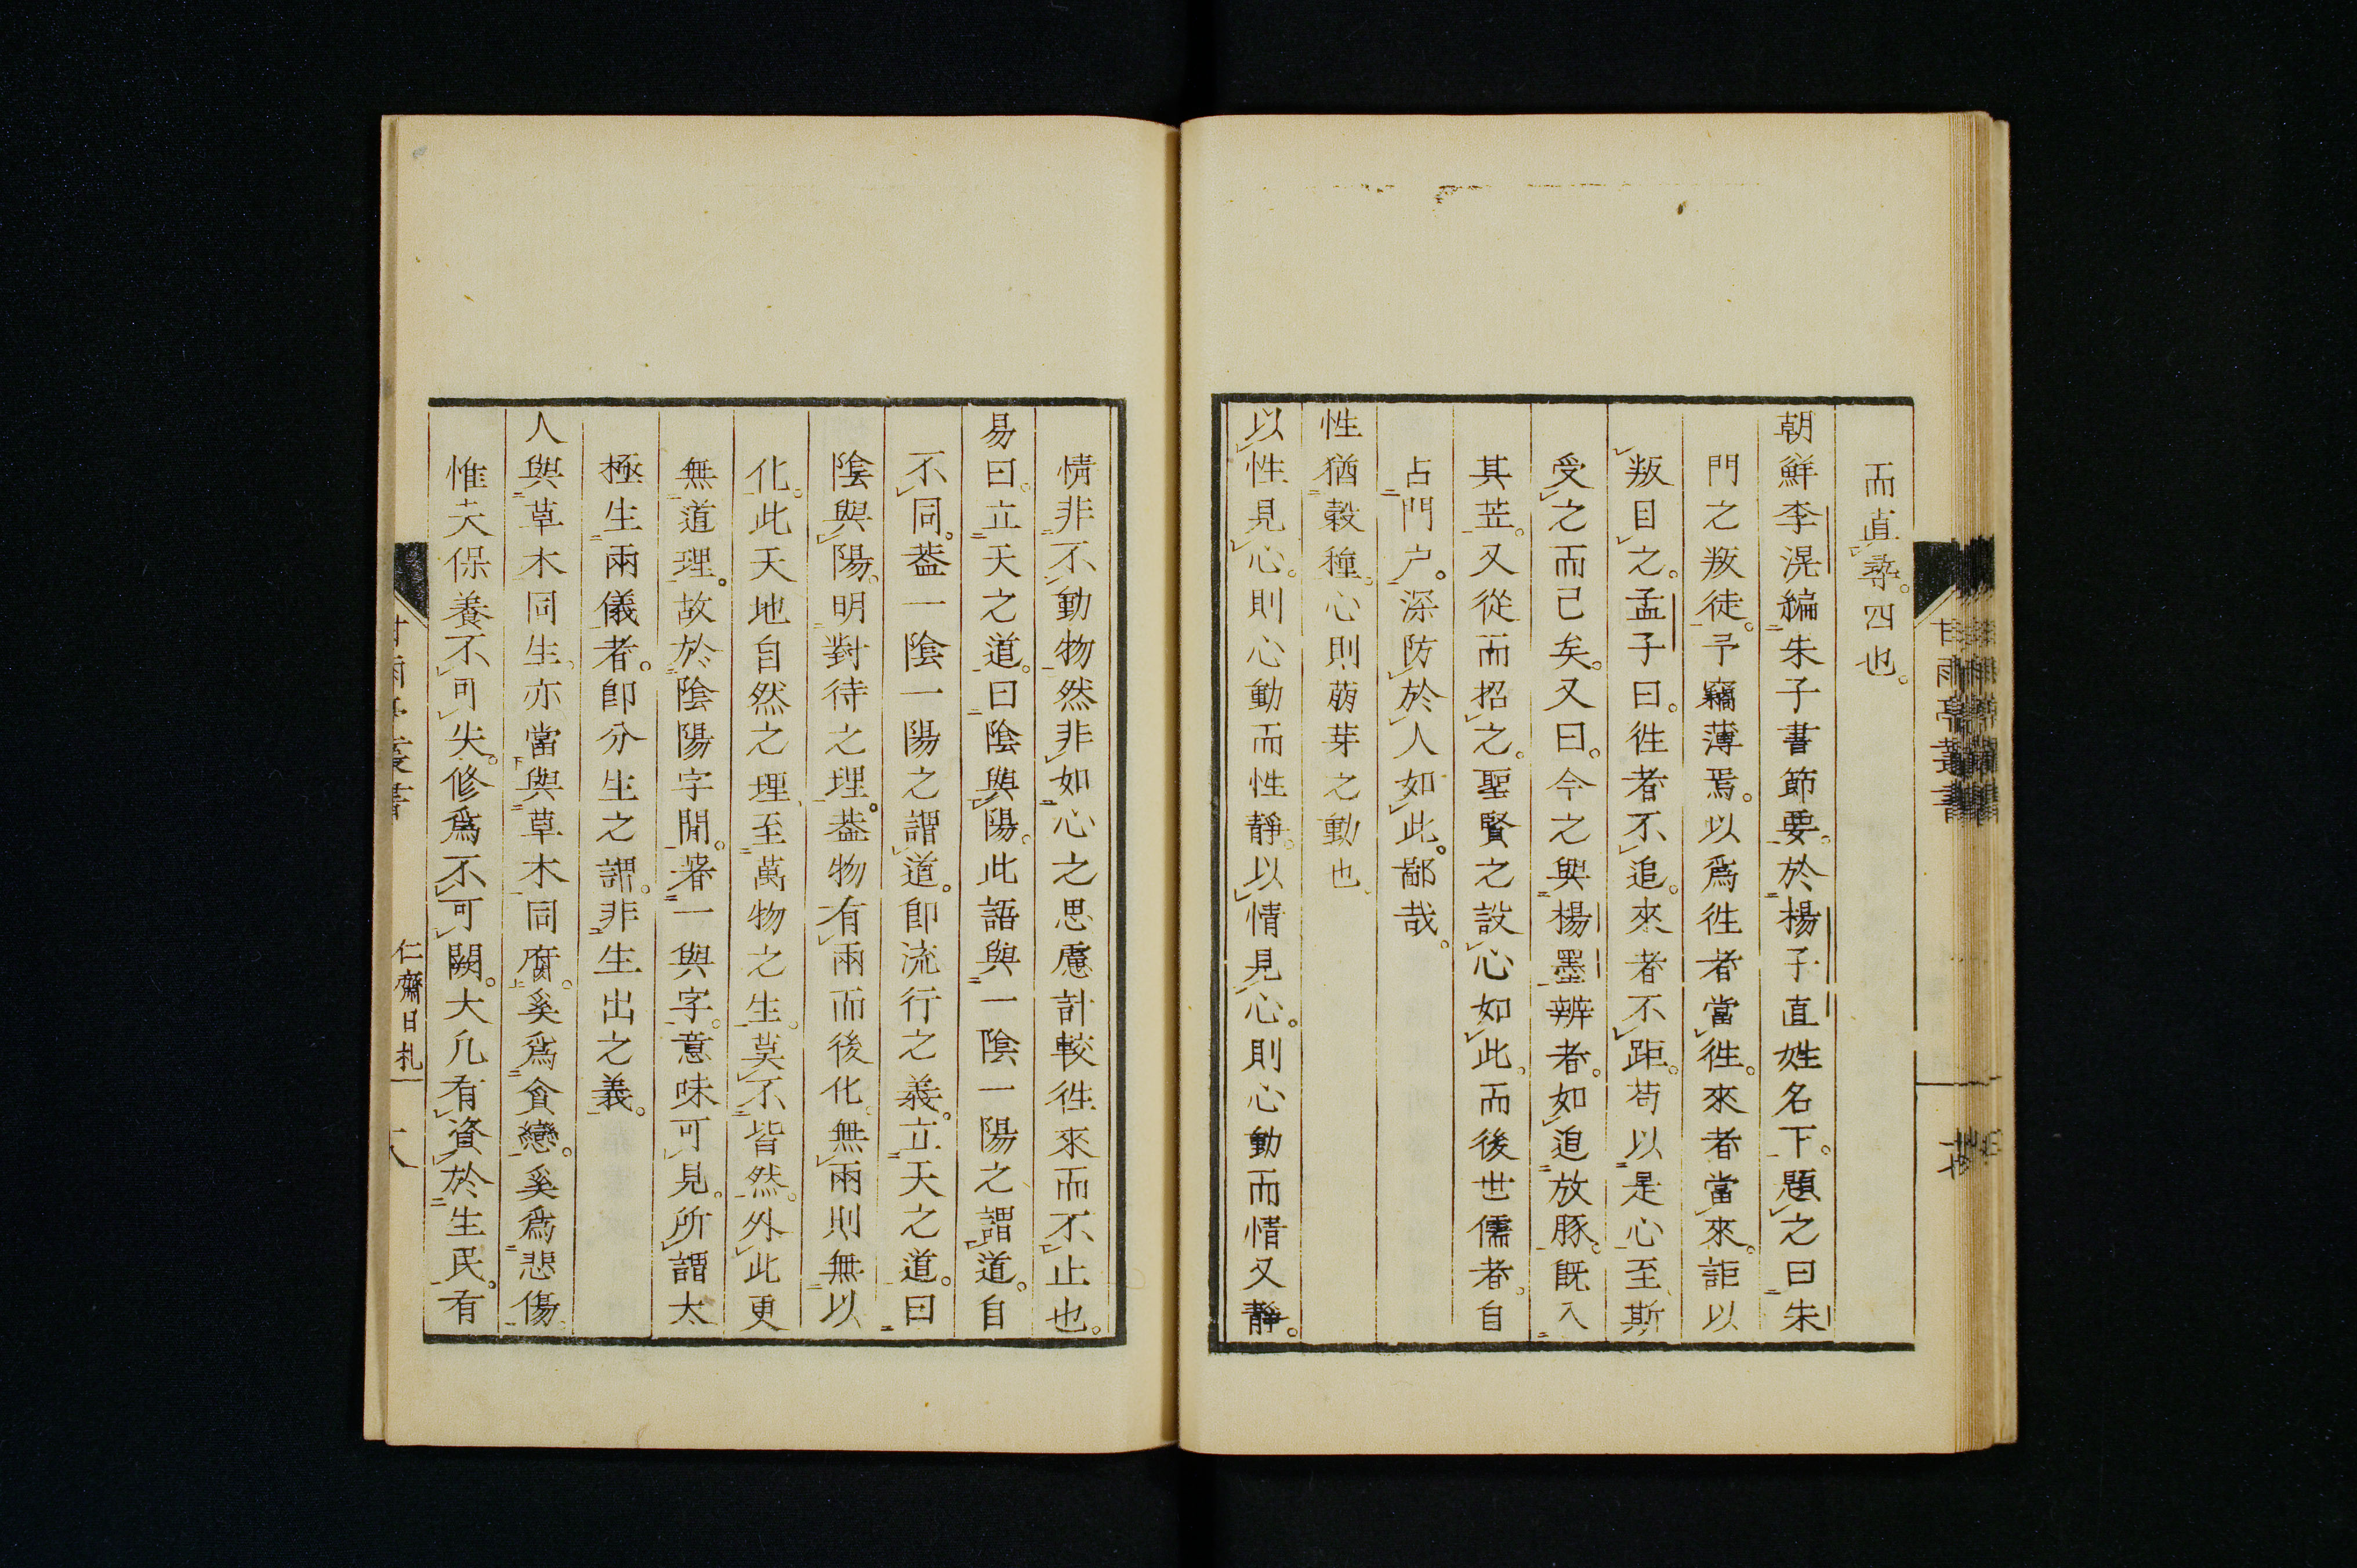 而直尋。四也。
朝鮮李滉編朱子書節要。於楊子直姓名下。題之曰朱
門之叛徒。予竊薄焉。以爲徃者當徃。來者當來。詎以
叛目之。孟子曰。徃者不追。來者不距。苟以是心至斯
受之而已矣。又曰。今之與楊墨辨者。如追放豚。既入
其苙。又從而招之。聖賢之設心如此。而後世儒者。自
占門户。深防於人如此。鄙哉。
性猶穀種。心則萌芽之動也
以性見心。則心動而性靜。以情見心。則心動而情又靜。
情非不動物然非如心之思慮計較徃來而不止也。
易曰。立天之道。曰陰與陽。此語與一陰一陽之謂道。自
不同。葢一陰一陽之謂道。卽流行之義。立天之道。曰
陰與陽。明對待之理。葢物有兩而後化。無兩則無以
化。此天地自然之理、至萬物之生。莫不皆然。外此更
無道理。故於陰陽字閒。著一與字。意味可見。所謂太
極生兩儀者。卽分生之謂。非生出之義。
人與草木同生、亦當與草木同腐。奚爲貪戀。奚爲悲傷。
惟夫保養不可失。修爲不可闕。大凡有資於生民。有
甘雨亭叢書
仁齋日札